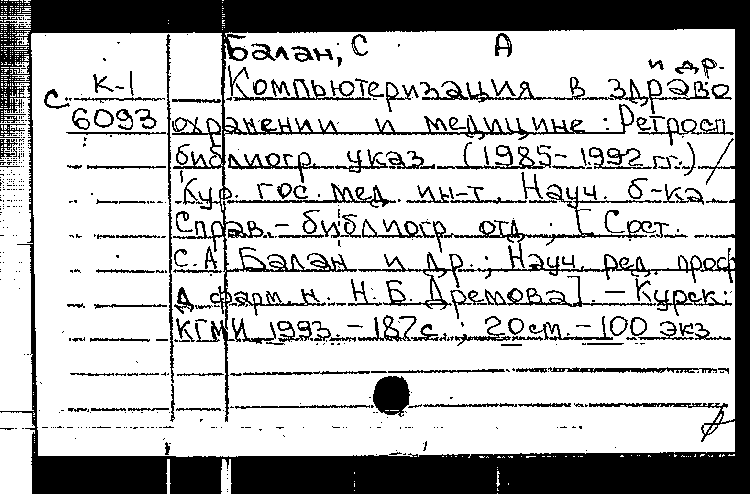 Балан, С А
и др.
К-1 Компьютеризация в здраво
С 6093 охранении и медицине : Ретросп
библиогр. указ. (1985-1992 гг.) /
Кур. гос. мед. ин-т. Науч. б-ка
Справ.- библиогр. отд ; [ Сост.
С.А Балан и др. ; Науч. ред. проф
д фарм. н. Н. Б Дремова]. - Курск:
КГМИ 1993. - 187с. ; 20см. - 100 экз